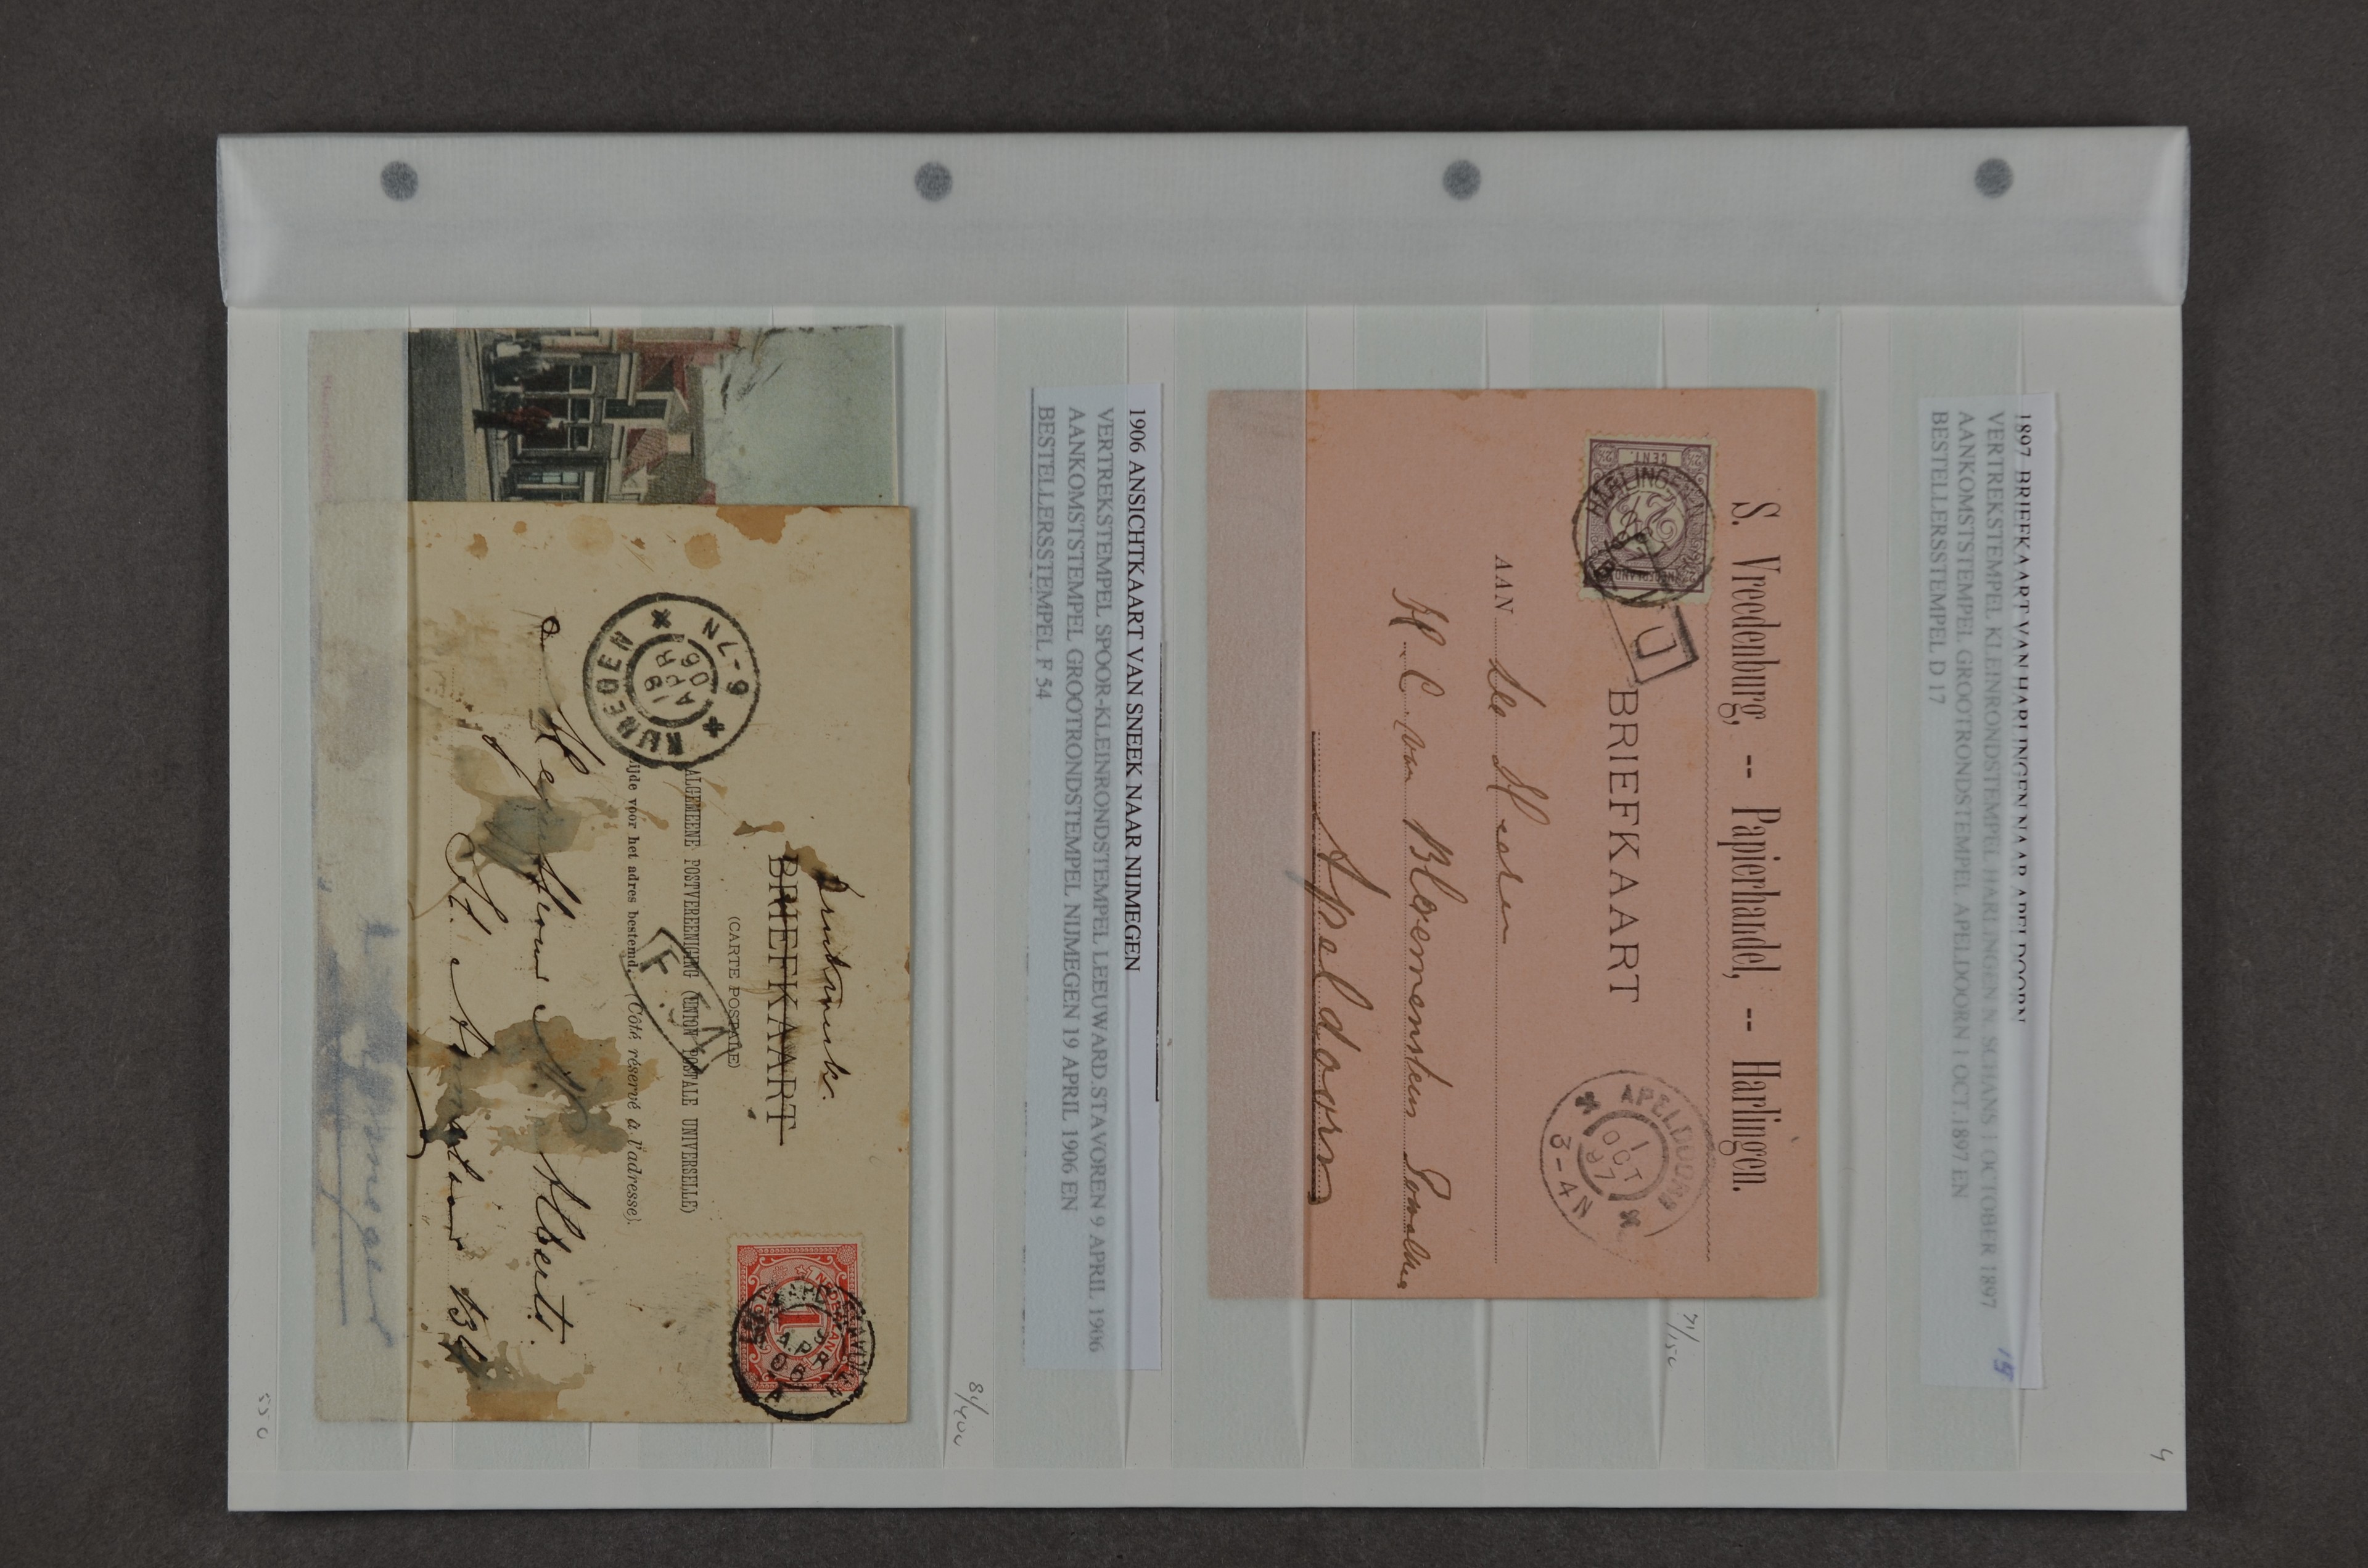 4
1897 BRIEFKAART VAN HARLINGEN NAAR APELDOORN
VERTREKSTEMPEL KLEINRONDSTEMPEL HARLINGEN N. SCHANS 1 OCTOBER 1897
AANKOMSTSTEMPEL GROOTRONDSTEMPEL APELDOORN 1 OCT.1897 EN
BESTELLERSSTEMPEL D 17
S. Vreedenburg, -- Papierhandel, -- Harlingen.
CENT.
HARLINGEN
D
BRIEFKAART
APELDOORN
1
OCT
97
3-4N
AAN
H. C. van Bloemenstein
Apeldoorn
71/150
1906 ANSICHTKAART VAN SNEEK NAAR NIJMEGEN
VERTREKSTEMPEL SPOOR-KLEINRONDSTEMPEL LEEUWARD.STAVOREN 9 APRIL 1906
AANKOMSTSTEMPEL GROOTRONDSTEMPEL NIJMEGEN 19 APRIL 1906 EN
BESTELLERSSTEMPEL F 54
81/400
Drukwerk.
BRIEFKAART
(CARTE POSTALE)
ALGEMEENE POSTVEREENIGING (UNION POSTALE UNIVERSELLE)
ijde voor het adres bestemd. (Côté réservé à l'adresse).
NIJMEGEN
19
APR
06
6-7N
F
1
9
APR
06
A
Alberts.
St.